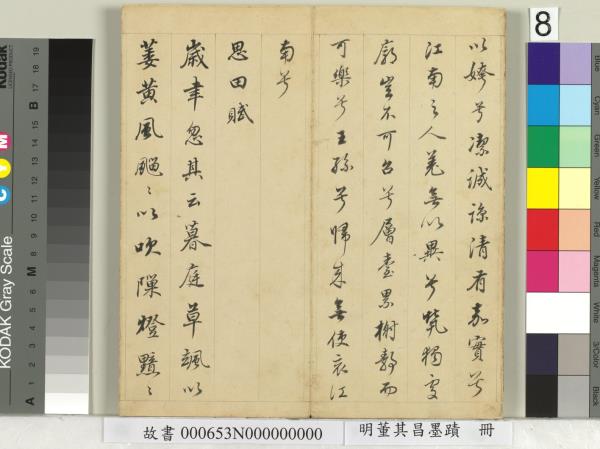 以姱兮潔誠諒清有嘉實兮
江南之人羌無以異兮煢獨處
廓豈不可召兮層臺累榭靜而
可樂兮王孫兮歸來無使哀江
南兮
思田賦
歲聿忽其云暮庭草颯以
萎黃風飋〻以吹隟燈黯〻
8
故書 000653N000000000
明董其昌墨蹟 冊
KODAK Gray Scale
Kodak
C Y M
A 1 2 3 4 5 6 M 8 9 10 11 12 13 14 15 B 17 18 19
Blue
Cyan
Green
Yellow
Red
Magenta
White
3/Color
Black